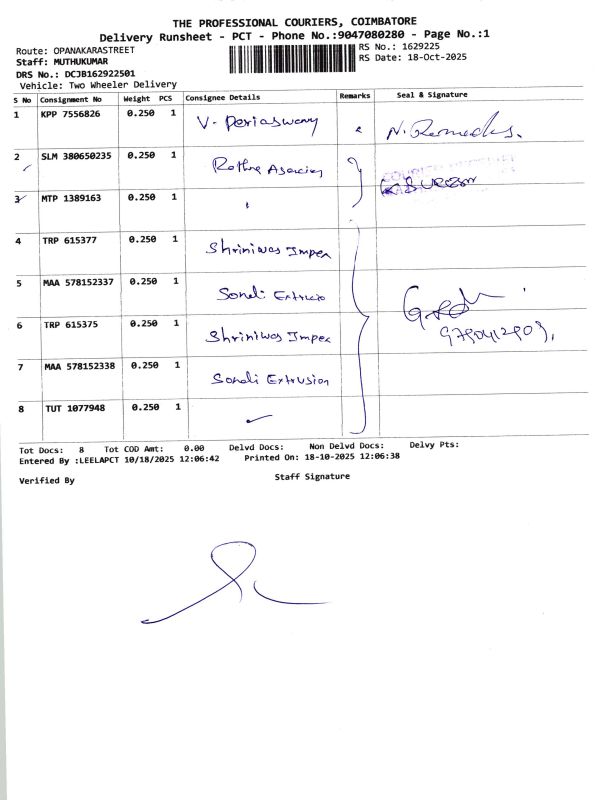 THE PROFESSIONAL COURIERS, COIMBATORE
Delivery Runsheet - PCT - Phone No.:9047080280 - Page No.:1
Route: OPANAKARASTREET
RS No.: 1629225
Staff: MUTHUKUMAR
RS Date: 18-Oct-2025
DRS No.: DCJB162922501
Vehicle: Two Wheeler Delivery
S No Consignment No Weight PCS Consignee Details Remarks Seal & Signature
1 KPP 7556826 0.250 1 V. Periaswamy
2 SLM 380650235 0.250 1 Rathna Agencies
3 MTP 1389163 0.250 1
4 TRP 615377 0.250 1 Shriniwas Impex
5 MAA 578152337 0.250 1 Sonali
6 TRP 615375 0.250 1 Shriniwas Impex
9790412903
7 MAA 578152338 0.250 1 Sonali Extrusion
8 TUT 1077948 0.250 1
Tot Docs: 8 Tot COD Amt: 0.00 Delvd Docs: Non Delvd Docs: Delvy Pts:
Entered By :LEELAPCT 10/18/2025 12:06:42 Printed On: 18-10-2025 12:06:38
Verified By Staff Signature